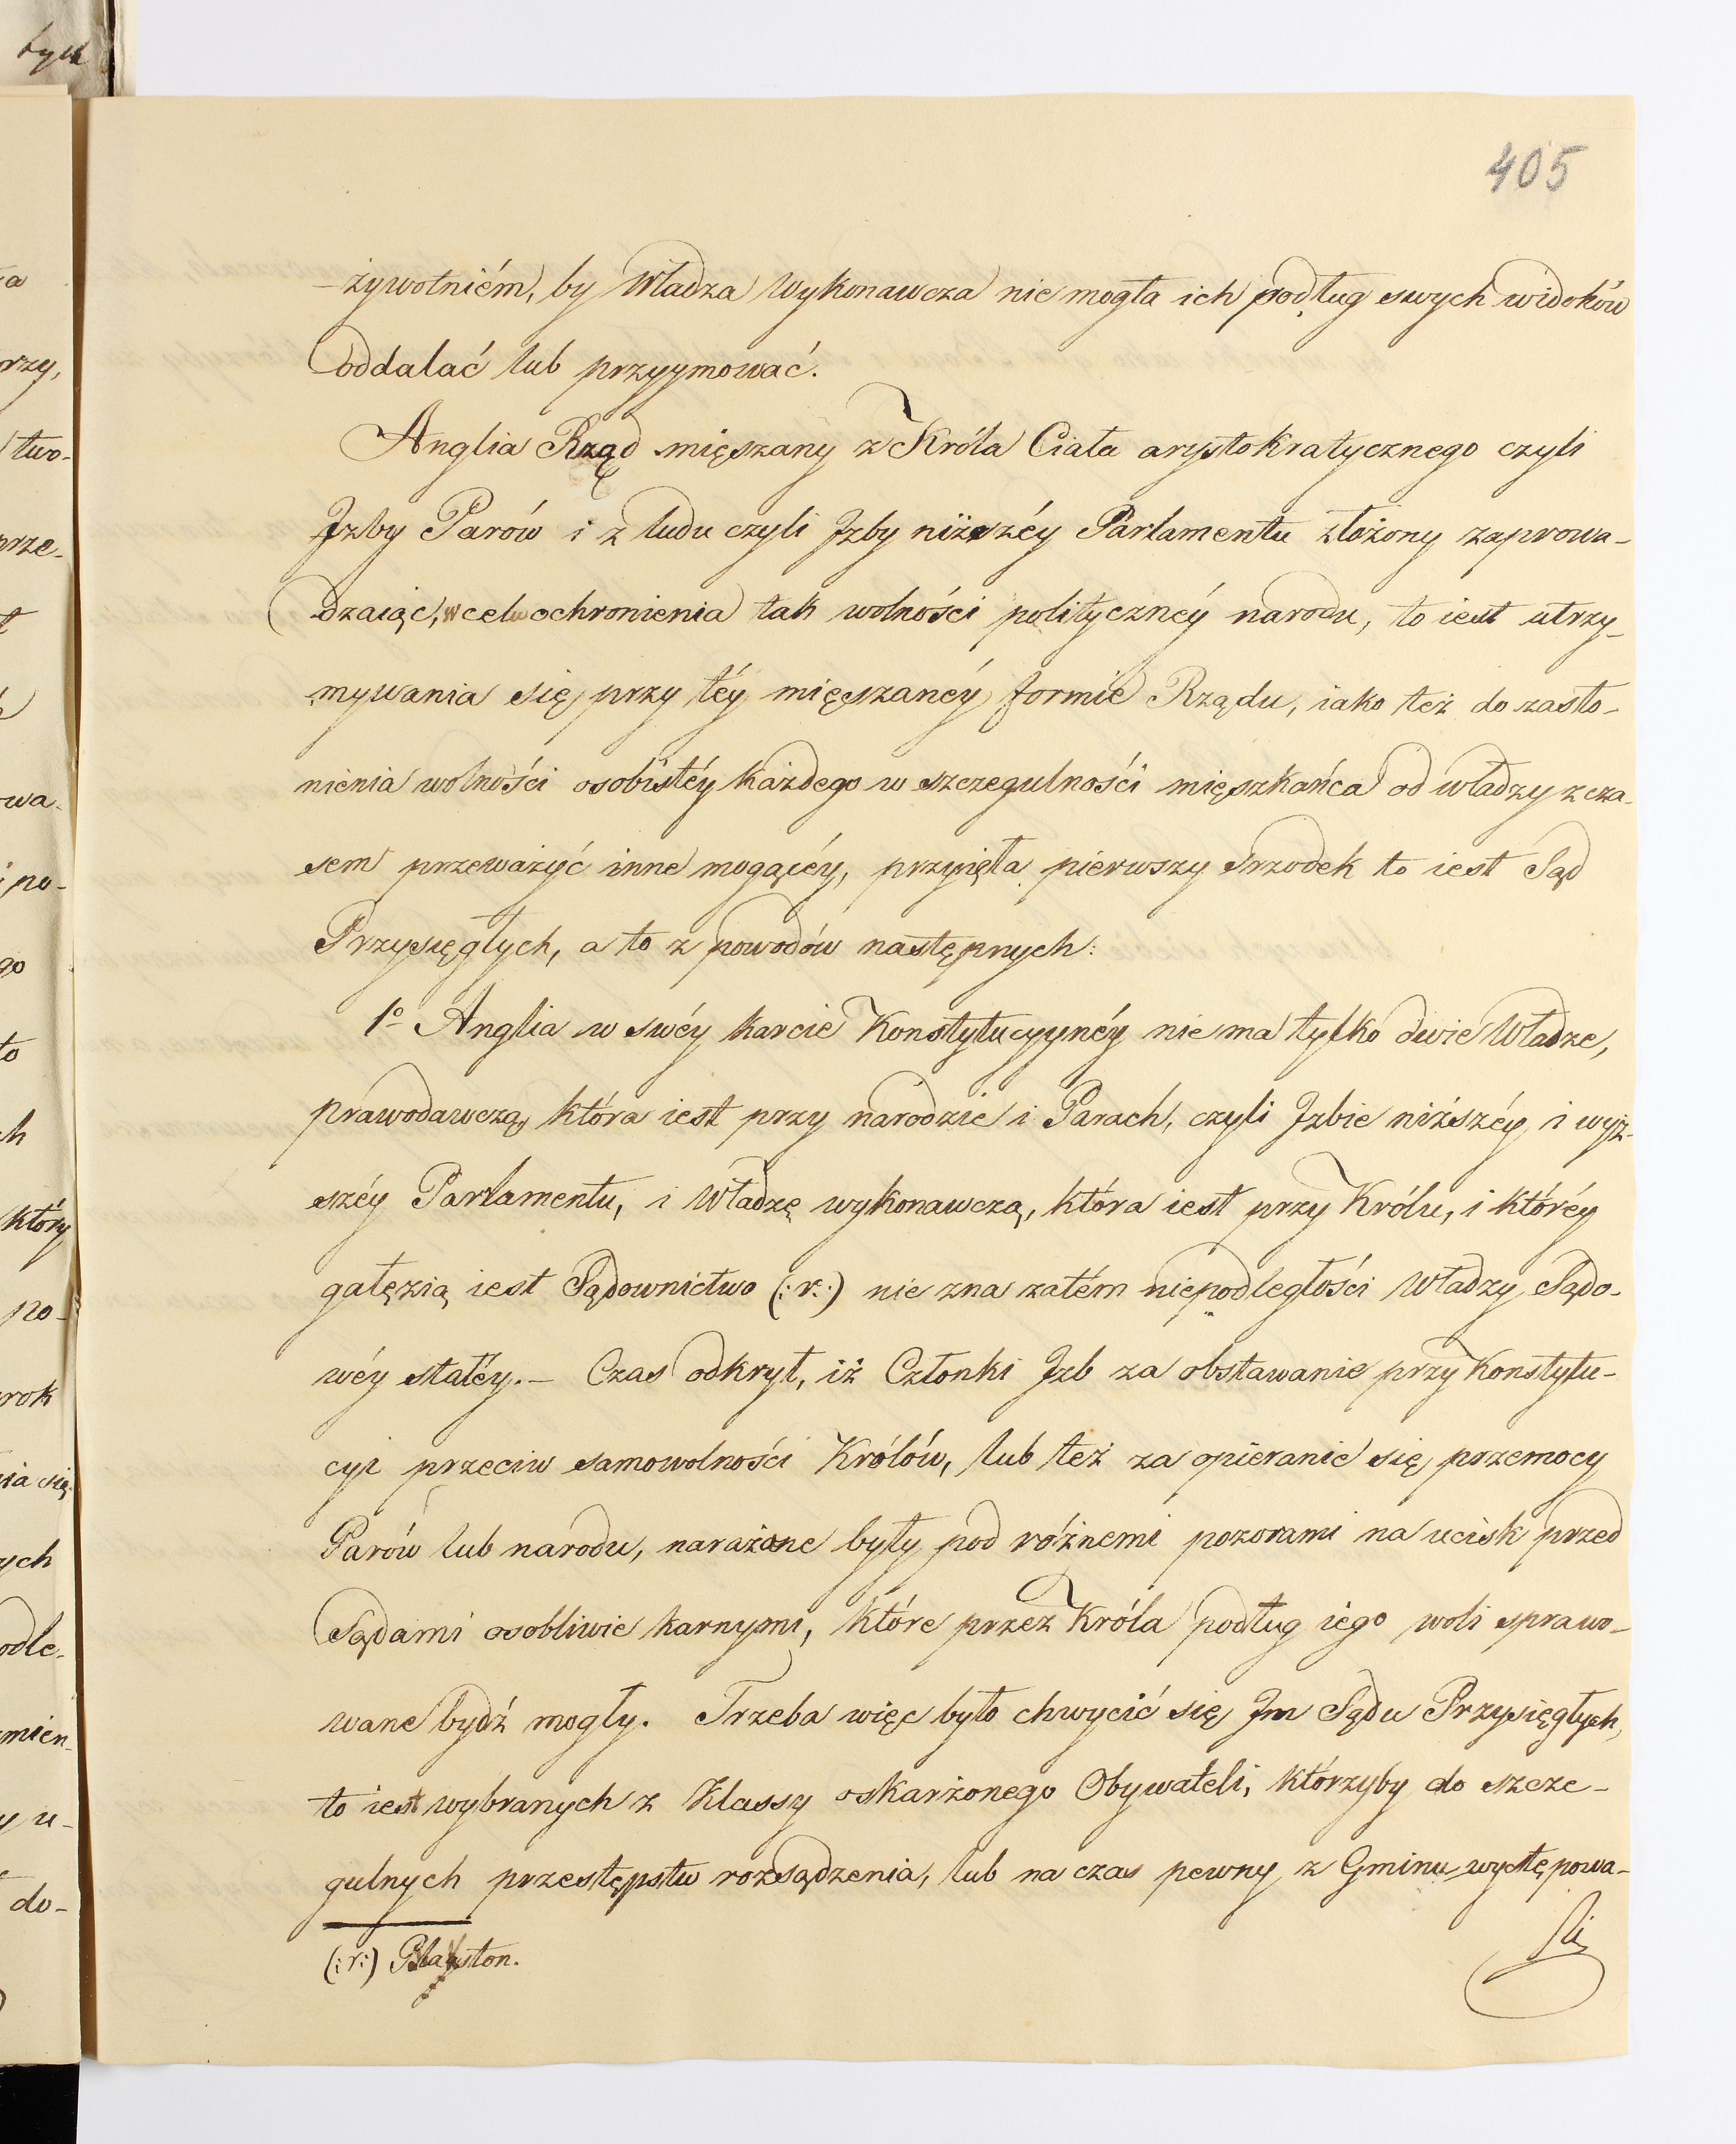 405
-żywotniém, by Władza Wykonawcza nie mogła ich podług swych widoków
oddalać lub przyymować.
Anglia Rząd mięszany z Króla Ciała arystokratycznego czyli
Jzby Parów i z ludu czyli Jzby niższéy Parlamentu złożony zaprowa-
dzaiąc, w celu ochronienia tak wolności polityczney narodu, to iest utrzy-
mywania się przy téy mięszanéy formie Rządu, iako też do zasło-
nienia wolności osobistéy każdego w szczegulności mięszkańca od władzy z cza-
sem przeważyć inne mogącéy, przyięła pierwszy Srzodek to iest Sąd
Przysięgłych, a to z powodów następnych:
1º Anglia w swéy karcie Konstytucyynéy nie ma tylko dwie Władze,
prawodawczą, która iest przy narodzie i Parach, czyli Jzbie niższéy i wyż-
széy Parlamentu, i Władzę wykonawczą, która iest przy Królu, i któréy
gałęzią iest Sądownictwo (:r:) nie zna zatém niepodległości Władzy Sądo-
wéy stałéy.- Czas odkrył, iż Członki Jzb za obstawanie przy Konstytu-
cyi przeciw samowolności Królów, lub też za opieranie się przemocy
Parów lub narodu, narażone były pod różnemi pozorami na ucisk przed
Sądami osobliwie karnymi, które przez Króla podług iego woli sprawo-
wane bydź mogły. Trzeba więc było chwycić się Jm Sądu Przysięgłych,
to iest wybranych z Klassy oskarżonego Obywateli, którzyby do szcze-
gulnych przestępstw rozsądzenia, lub na czas pewny z Gminu występowa-
li
(:r:) Blakston.
tych
a
rzy,
two-
prze-
owa-
i po-
go
to
ch
który
po-
rok
ia się
ych
odle-
mien-
y u-
do-